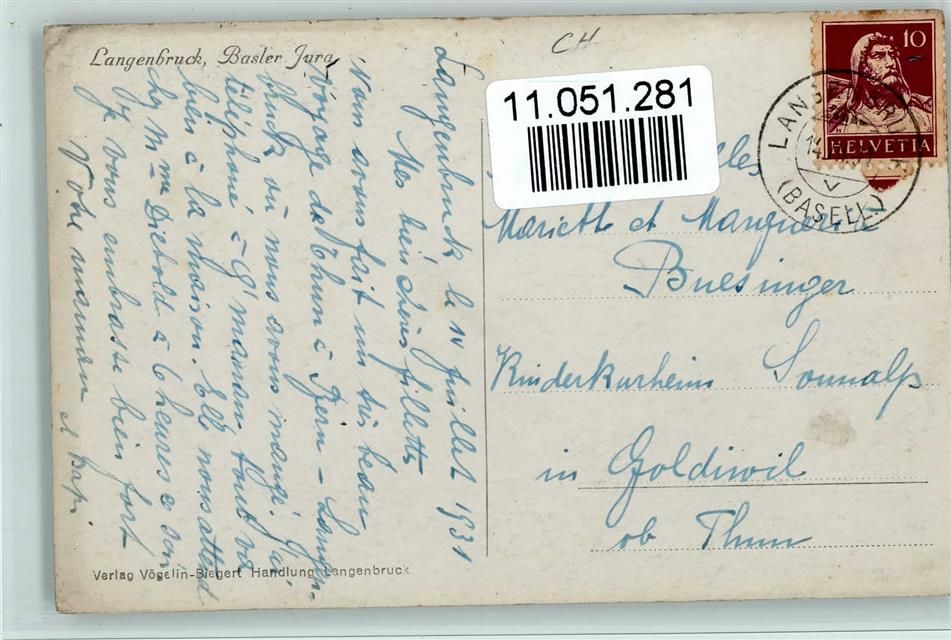 Langenbruck, Basler Jura
CH
11.051.281
10
HELVETIA
LANGENBRUCK
14
(BASELLD)
Langenbruck le 14 juillet 1931
Mes bien chères fillettes
Nous avons fait un très beau
voyage de Thun à Bern - Langen-
bruck où nous avons mangé. J'ai
téléphoné à g' maman, tout va
bien à la maison. Elle nous attend
chez Mme Dietold à 6 heures ce soir
Je vous embrasse bien fort
Votre maman et papi
Verlag Vögelin-Biegert Handlung Langenbruck
Mariette et Marguerite
Buesinger
Kinderkurheim Sonnalp
in Goldiwil
ob Thun